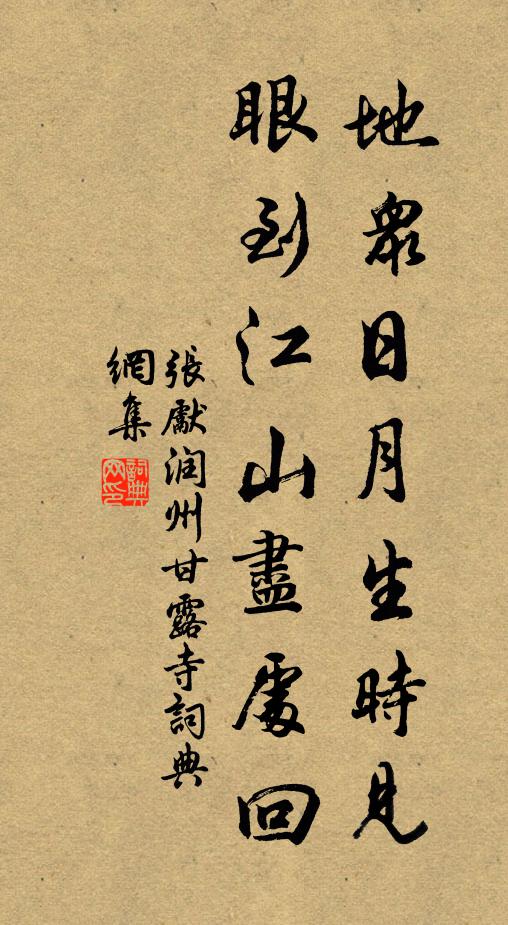 地眾日月生時見
眼到江山盡處回
張獻润州甘露寺詞典
網集
詞典
网印